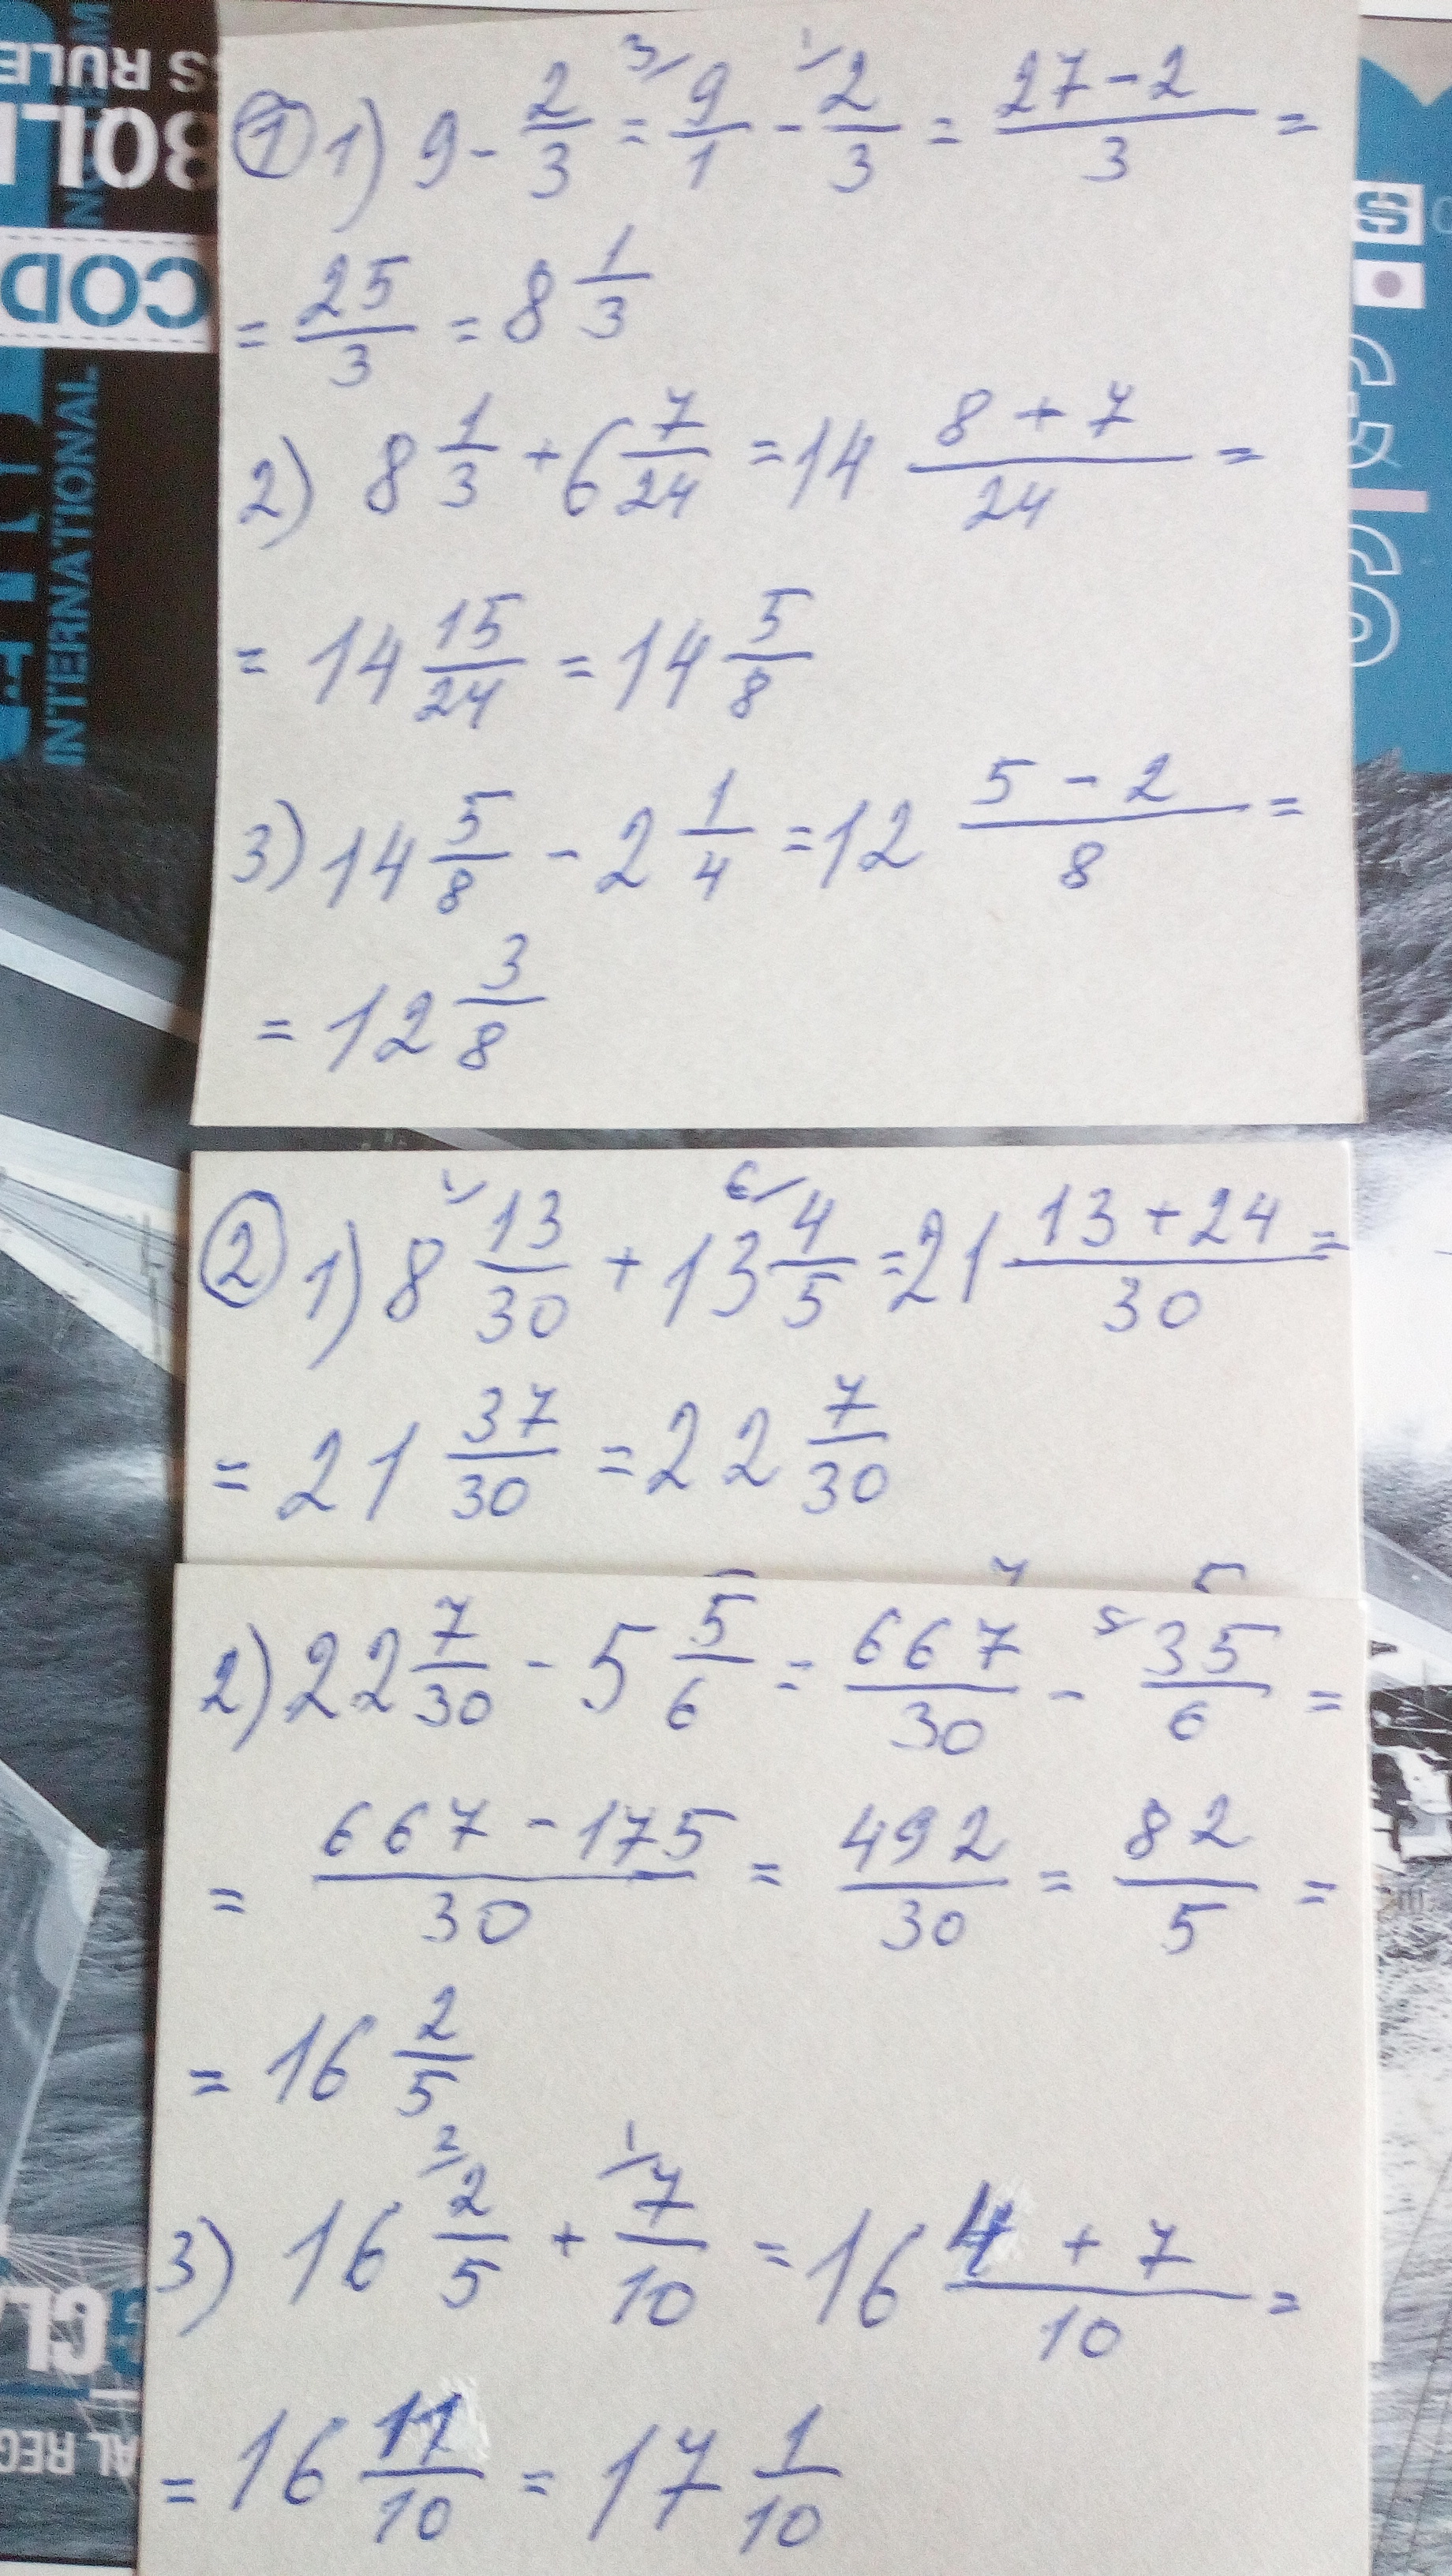 ① 1) 9 - 2/3 = 3/ 9/1 - 1/ 2/3 = (27-2)/3 =
= 25/3 = 8 1/3
2) 8 1/3 + 6 7/24 = 14 (8+7)/24 =
= 14 15/24 = 14 5/8
3) 14 5/8 - 2 1/4 = 12 (5-2)/8 =
= 12 3/8
② 1) 8 1/ 13/30 + 13 6/ 4/5 = 21 (13+24)/30 =
= 21 37/30 = 22 7/30
2) 22 7/30 - 5 5/6 = 667/30 - 5/ 35/6 =
= (667-175)/30 = 492/30 = 82/5 =
= 16 2/5
3) 16 2/ 2/5 + 1/ 7/10 = 16 (4+7)/10 =
= 16 11/10 = 17 1/10
S RULE
COD
INTERNATIONAL